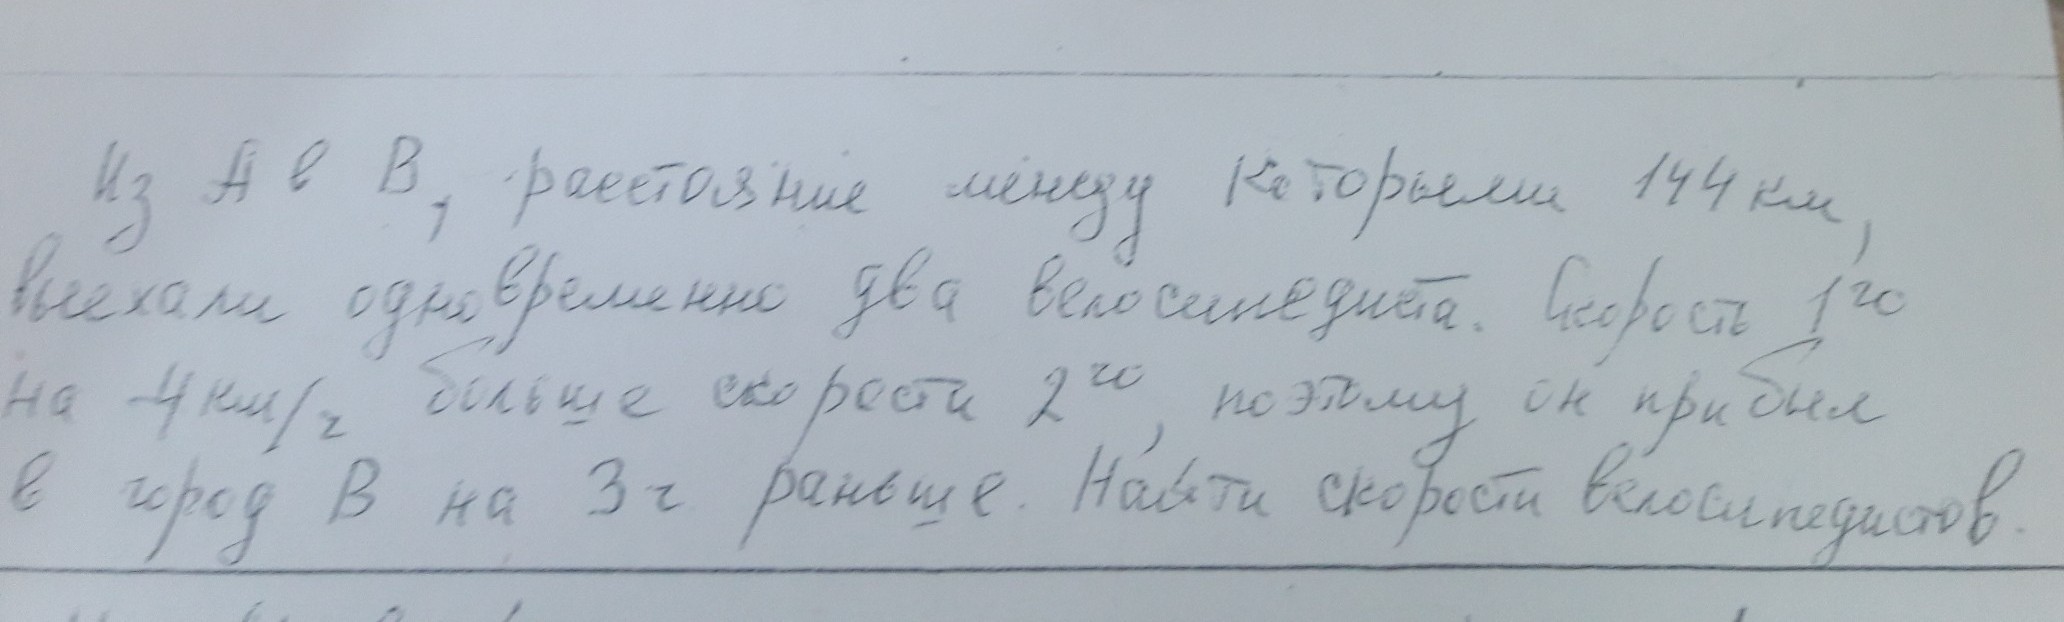 Из А в В, расстояние между которыми 144 км,
выехали одновременно два велосипедиста. Скорость 1го
на 4 км/ч больше скорости 2го, поэтому он прибыл
в город В на 3 ч раньше. Найти скорости велосипедистов.